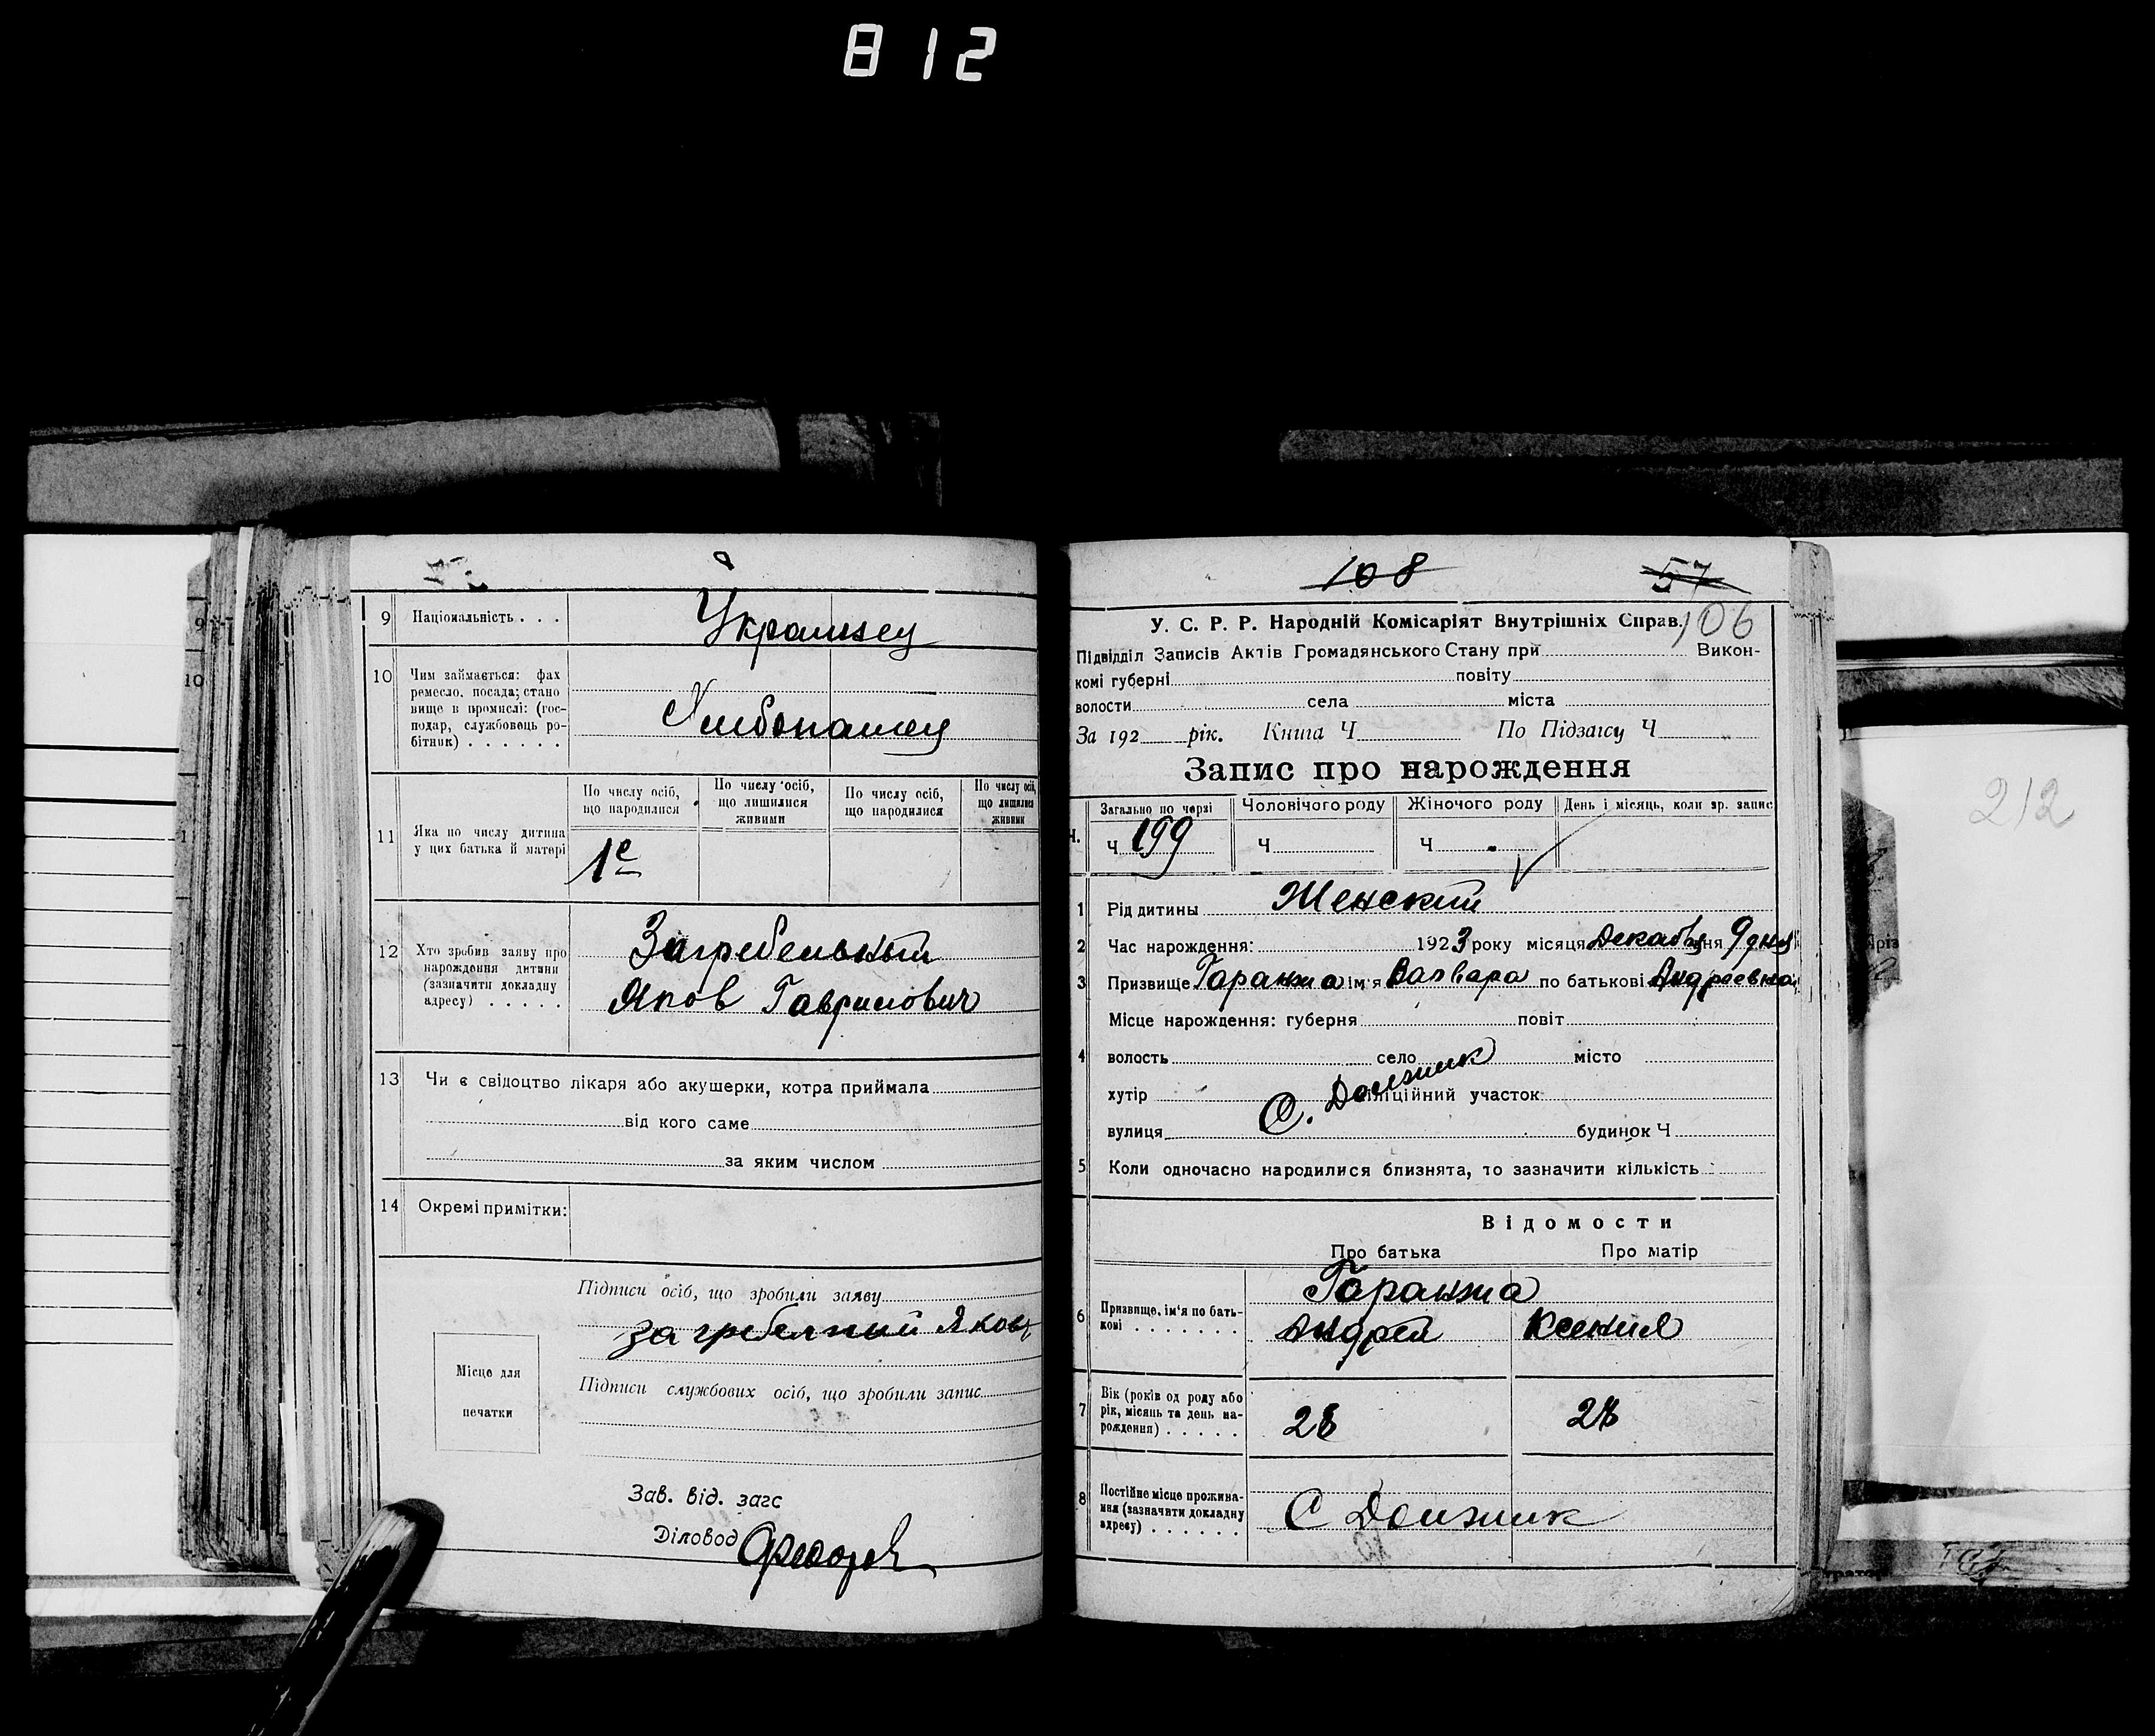 812
9 Національність . . .
Украинец
10 Чим займається: фах
ремесло, посада; стано
вище в промислі: (гос-
подар, службовець ро-
бітник) . . . . . .
Хлебопашец
11 Яка по числу дитина
у цих батька й матері
По числу осіб,
що народилися
По числу осіб,
що лишилися
живими
По числу осіб,
що народилися
По числу осіб,
що лишилися
живими
1е
12 Хто зробив заяву про
нарождення дитини
(зазначити докладну
адресу) . . . . .
Загребельный
Яков Гаврилович
13 Чи є свідоцтво лікаря або акушерки, котра приймала
від кого саме
за яким числом
14 Окремі примітки:
Підписи осіб, що зробили заяву
загребелный Яков
Місце для
печатки
Підписи службових осіб, що зробили запис
Зав. від. загс
Діловод
108
57
106
У. С. Р. Р. Народній Комісаріят Внутрішніх Справ.
Підвідділ Записів Актів Громадянського Стану при Викон-
комі губерні повіту
волости села міста
За 192 рік. Книга Ч По Підзагсу Ч
Запис про нарождення
Загально по черзі Чоловічого роду Жіночого роду День і місяць, коли зр. запис
Ч 199 Ч Ч
1 Рід дитини Женский
2 Час нарождення: 1923 року місяця Декабря дня 9 дня
3 Призвище Гаранжа ім'я Варвара по батькові Андреевна
Місце нарождення: губерня повіт
4 волость село місто
С. Должик
хутір міліційний участок
вулиця будинок Ч
5 Коли одночасно народилися близнята, то зазначити кількість
Відомости
Про батька Про матір
6 Призвище, ім'я по бать-
кові . . . . . . .
Гаранжа
Андрей Ксения
7 Вік (років од роду або
рік, місяць та день на-
рождення) . . . . .
28 28
8 Постійне місце прожива-
ння (зазначити докладну
адресу) . . . . . .
С Должик
212